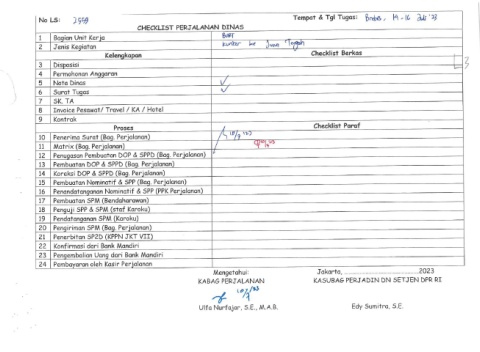 No LS: 2559
Tempat & Tgl Tugas: Brebes, 14-16 Juli '23
CHECKLIST PERJALANAN DINAS
1 Bagian Unit Kerja
2 Jenis Kegiatan Kunker ke Jawa Tengah
Kelengkapan Checklist Berkas
3 Disposisi
4 Permohonan Anggaran
5 Nota Dinas ✓
6 Surat Tugas ✓
7 SK. TA
8 Invoice Pesawat/ Travel / KA / Hotel
9 Kontrak
Proses Checklist Paraf
10 Penerima Surat (Bag. Perjalanan)
11 Matrix (Bag. Perjalanan)
12 Penugasan Pembuatan DOP & SPPD (Bag. Perjalanan)
13 Pembuatan DOP & SPPD (Bag. Perjalanan)
14 Koreksi DOP & SPPD (Bag. Perjalanan)
15 Pembuatan Nominatif & SPP (Bag. Perjalanan)
16 Penandatanganan Nominatif & SPP (PPK Perjalanan)
17 Pembuatan SPM (Bendaharawan)
18 Penguji SPP & SPM (staf Karoku)
19 Pendatanganan SPM (Karoku)
20 Pengiriman SPM (Bag. Perjalanan)
21 Penerbitan SP2D (KPPN JKT VII)
22 Konfirmasi dari Bank Mandiri
23 Pengembalian Uang dari Bank Mandiri
24 Pembayaran oleh Kasir Perjalanan
Mengetahui:
KABAG PERJALANAN
Jakarta, .................... 2023
KASUBAG PERJADIN DN SETJEN DPR RI
Ulfa Nurfajar, S.E., M.A.B.
Edy Sumitra, S.E.